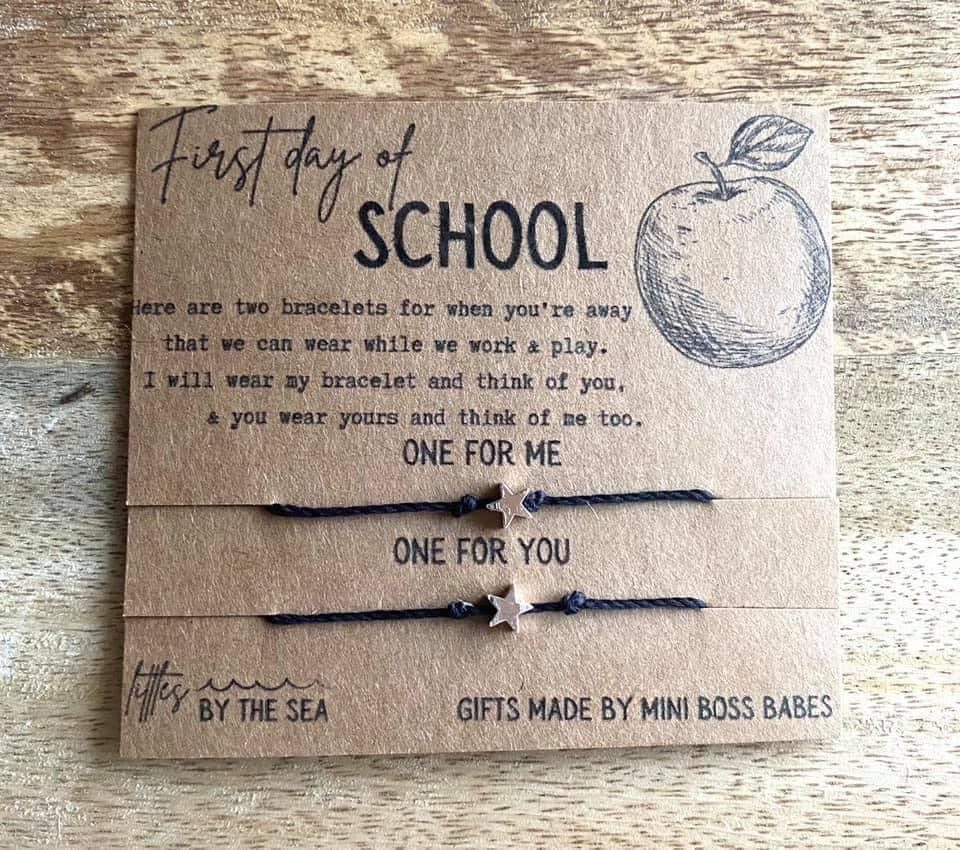 First day of
SCHOOL
Here are two bracelets for when you're away
that we can wear while we work & play.
I will wear my bracelet and think of you,
& you wear yours and think of me too.
ONE FOR ME
ONE FOR YOU
littles
BY THE SEA
GIFTS MADE BY MINI BOSS BABES